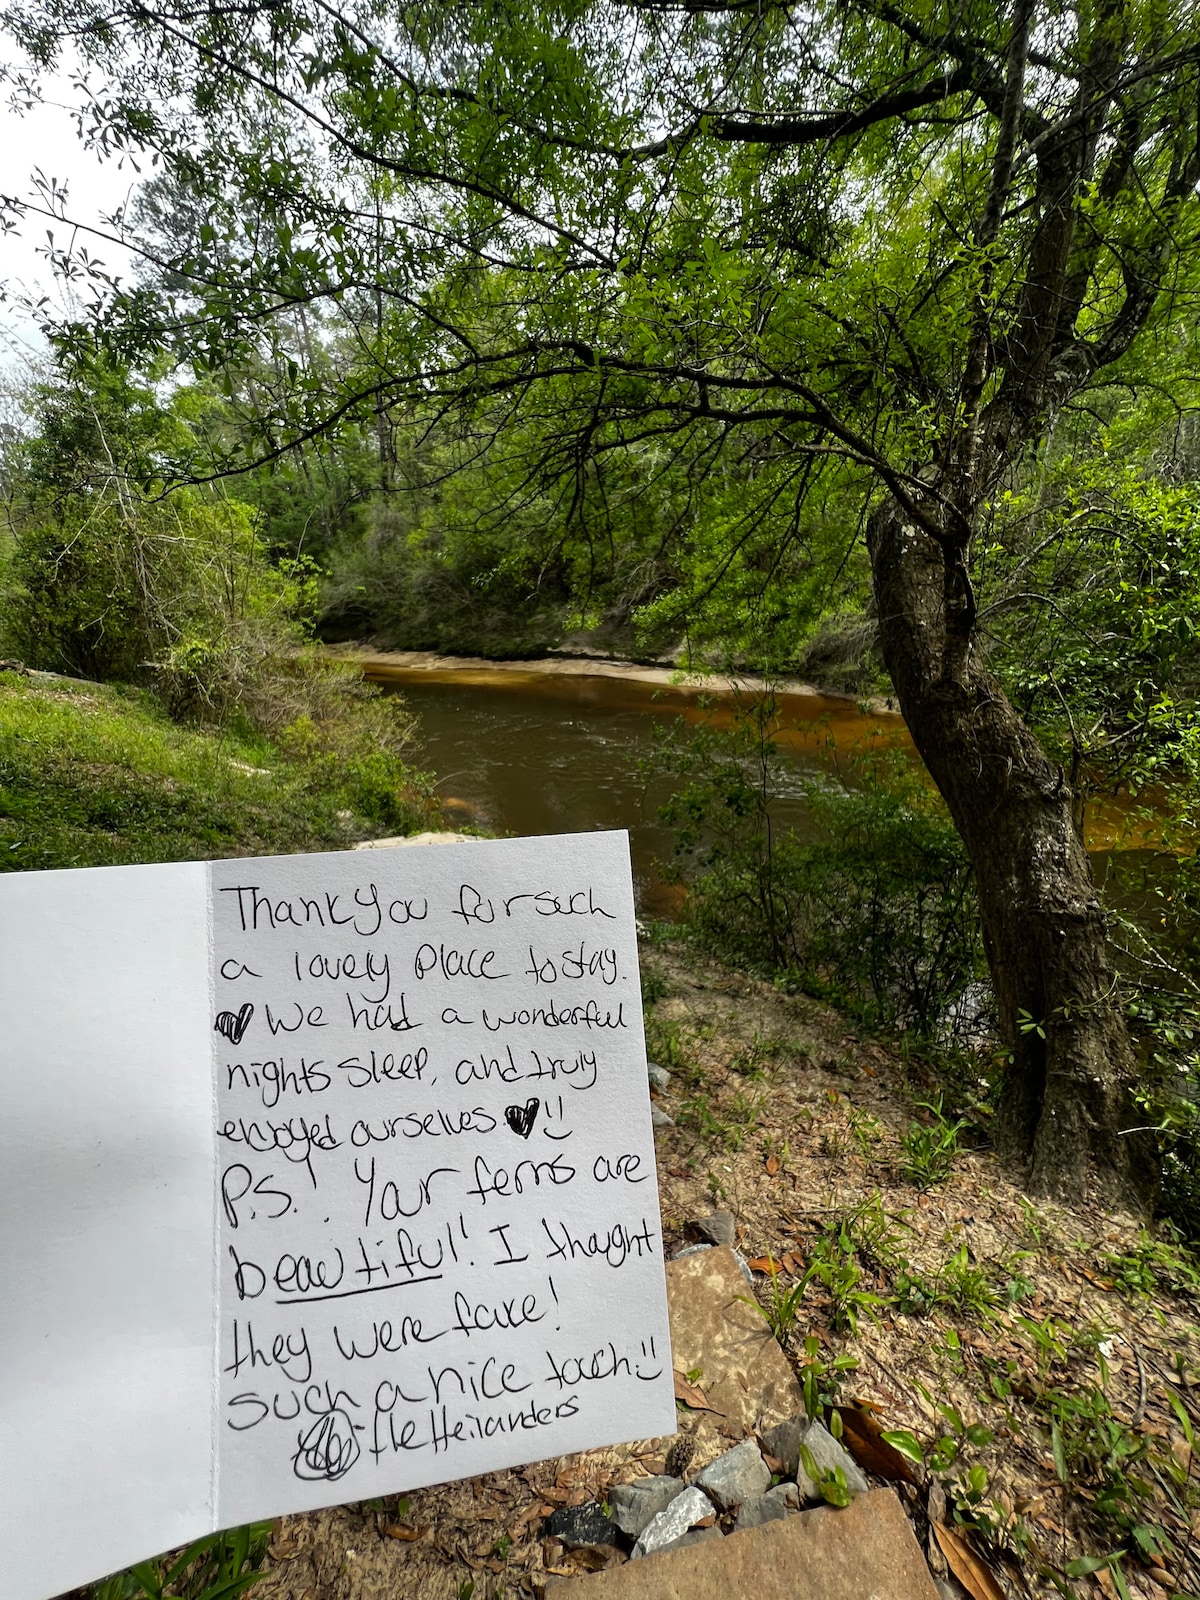 Thank you for such
a lovely place to stay.
♥ We had a wonderful
nights sleep, and truly
enjoyed ourselves ♥ :)
P.S.! Your ferns are
beautiful! I thought
they were fake!
such a nice touch :)